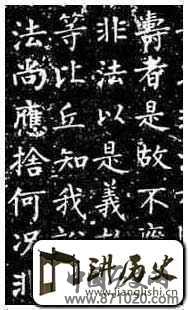 壽者是故不應
非法以是義故
等比丘知我說
法尚應捨何况非
讲历史
www.jianglishi.cn
www.871020.com